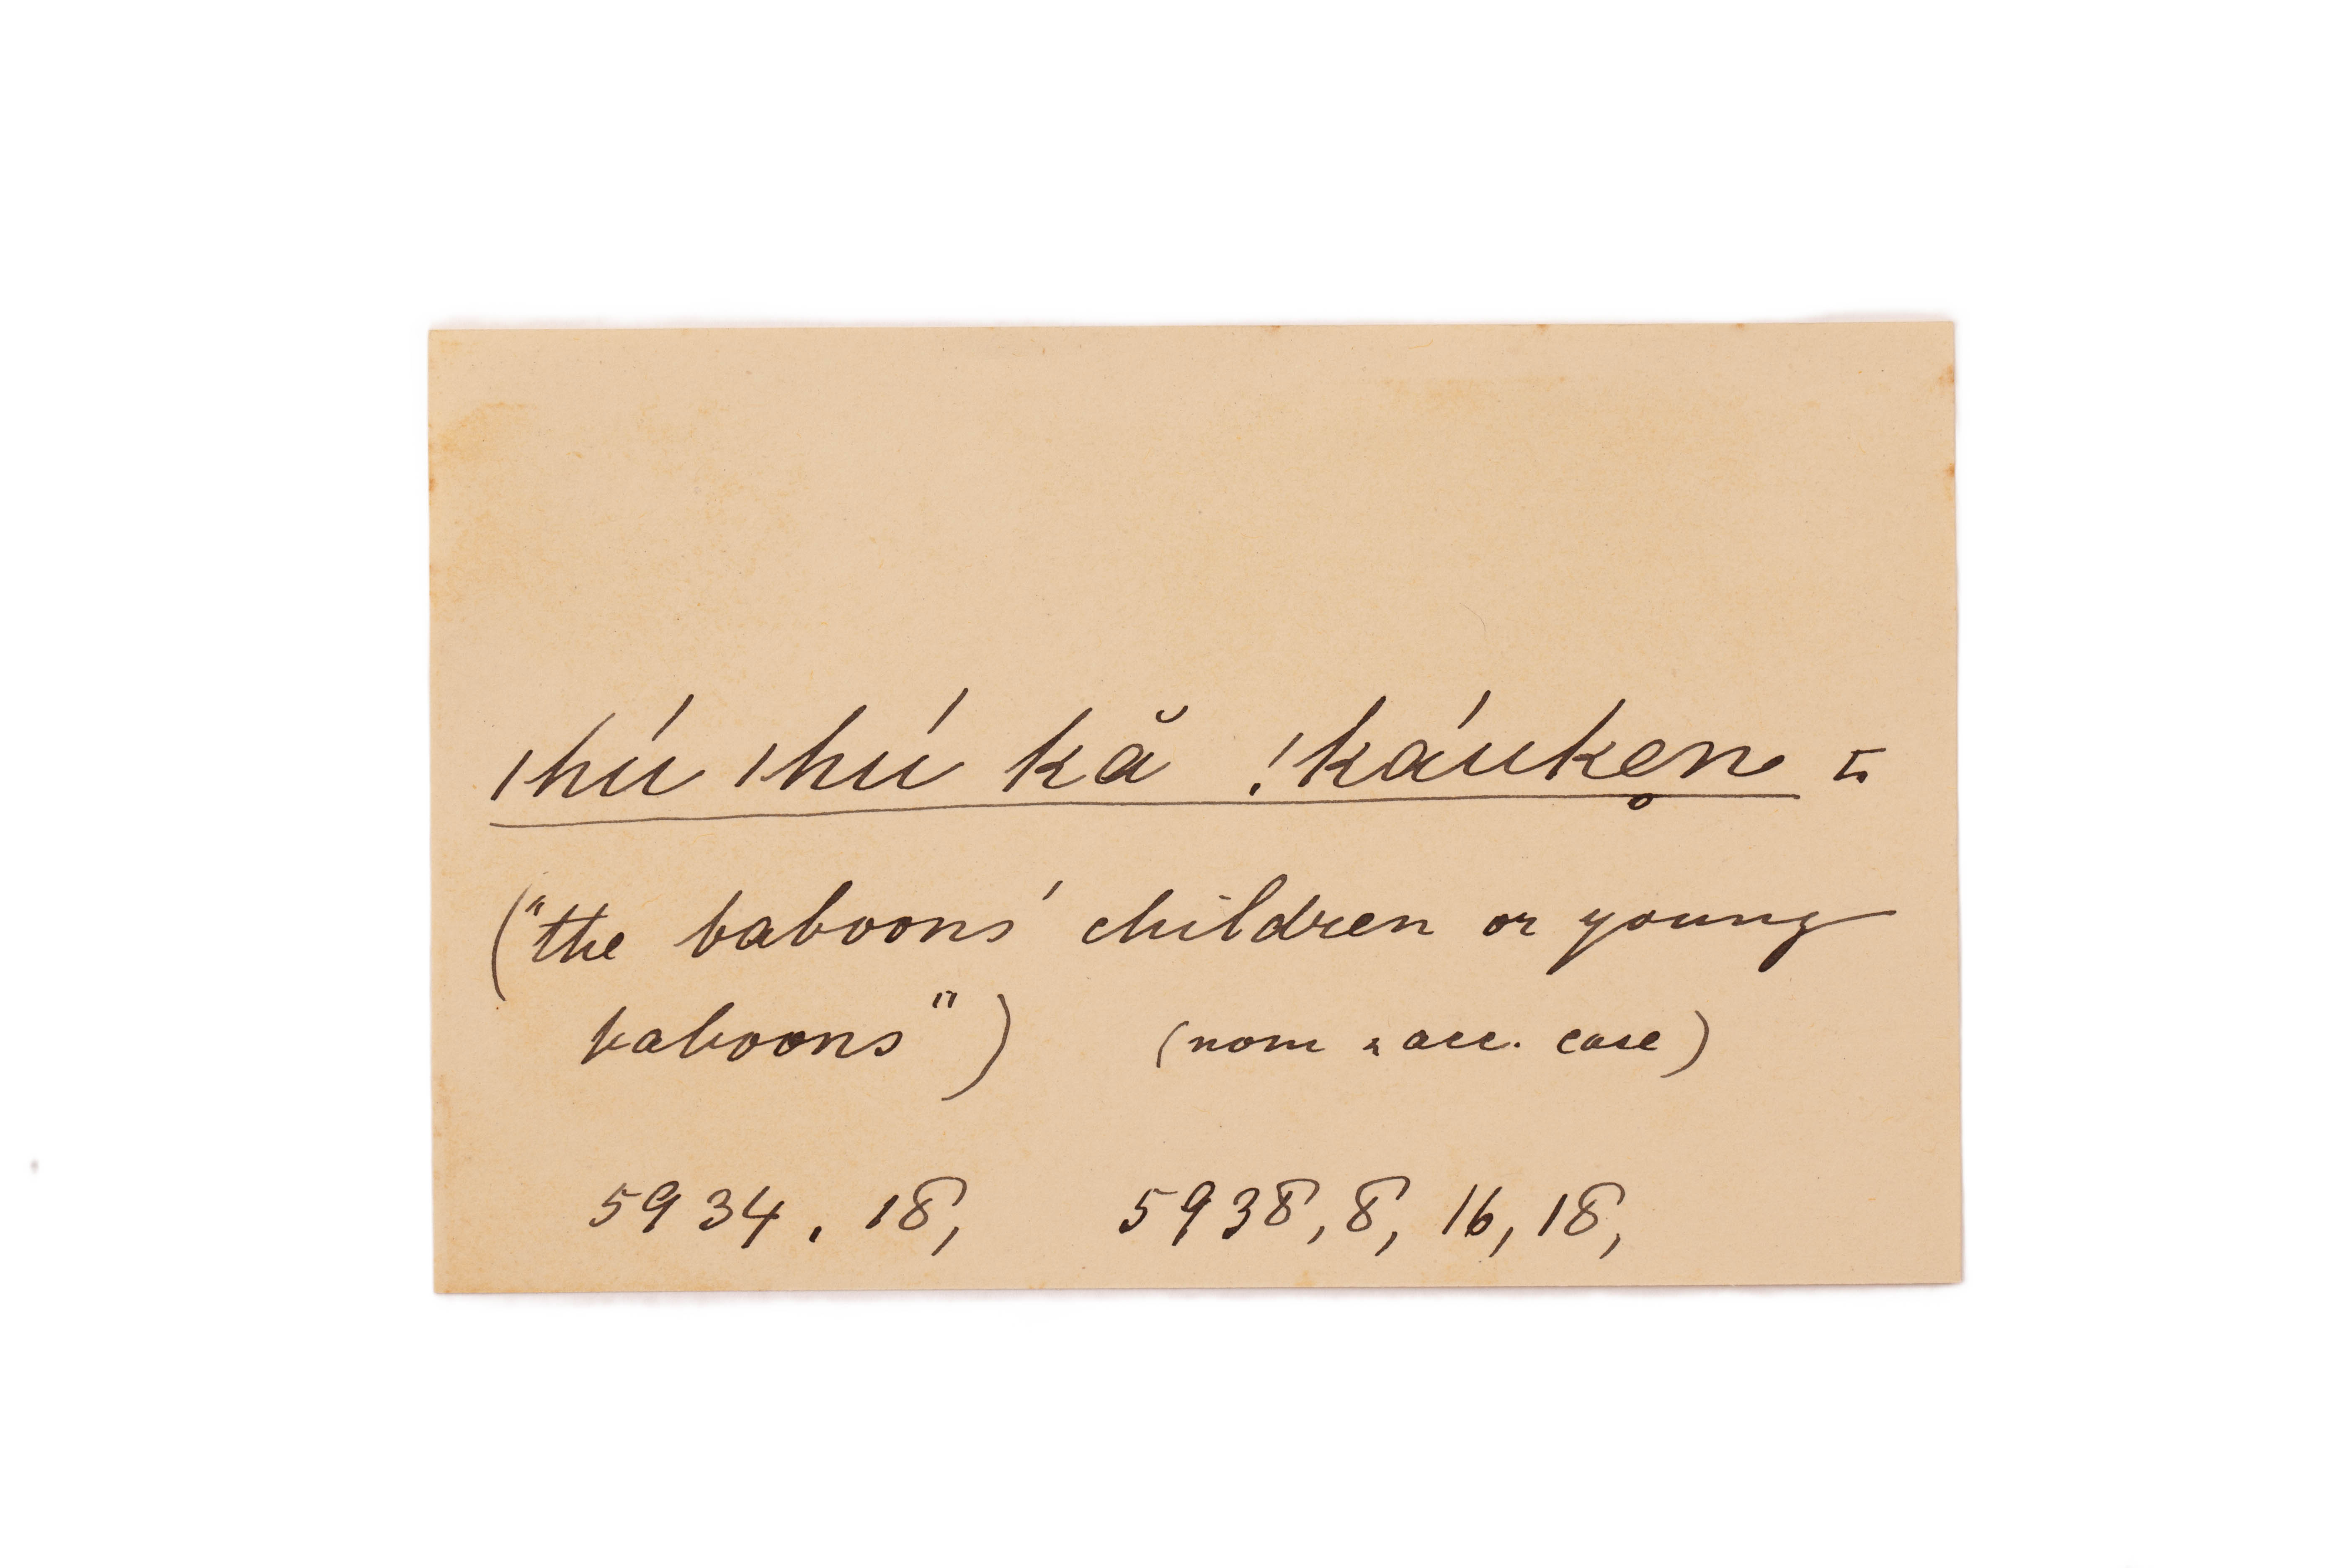 ǀhú ǀhú kă !káuken̥
("the baboons' children or young
baboons") (nom & acc. case)
5934. 18, 5938, 8, 16, 18,